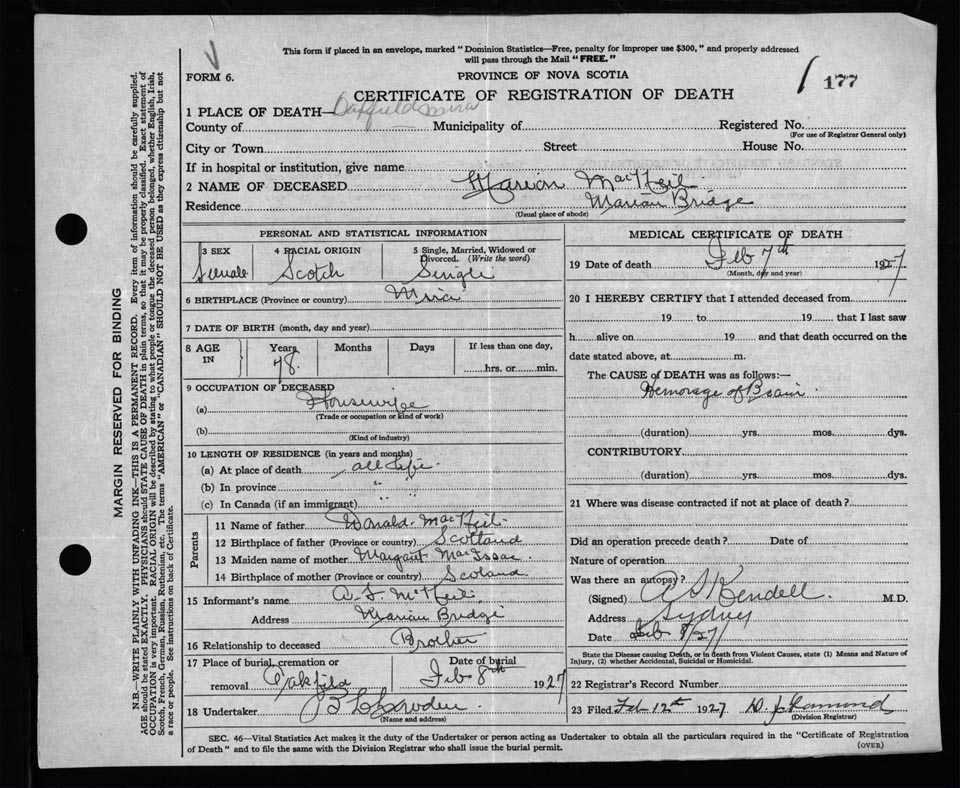 This form if placed in an envelope, marked "Dominion Statistics—Free, penalty for improper use $300," and properly addressed
will pass through the Mail "FREE."
FORM 6.
PROVINCE OF NOVA SCOTIA
177
CERTIFICATE OF REGISTRATION OF DEATH
1 PLACE OF DEATH— Oakfield Mira
County of Municipality of Registered No.
(For use of Registrar General only)
City or Town Street House No.
If in hospital or institution, give name
2 NAME OF DECEASED Marion MacNeil
Residence Marian Bridge
(Usual place of abode)
PERSONAL AND STATISTICAL INFORMATION
3 SEX 4 RACIAL ORIGIN 5 Single, Married, Widowed or
Divorced. (Write the word)
Female Scotch Single
6 BIRTHPLACE (Province or country) Mira
7 DATE OF BIRTH (month, day and year)
8 AGE IN Years Months Days If less than one day,
78 hrs. or min.
9 OCCUPATION OF DECEASED
(a) Housewife
(Trade or occupation or kind of work)
(b)
(Kind of industry)
10 LENGTH OF RESIDENCE (in years and months)
(a) At place of death all life
(b) In province " "
(c) In Canada (if an immigrant) " "
Parents
11 Name of father Donald MacNeil
12 Birthplace of father (Province or country) Scotland
13 Maiden name of mother Margaret MacIssac
14 Birthplace of mother (Province or country) Scoland
15 Informant's name McNeil
Address Marian Bridge
16 Relationship to deceased Brother
17 Place of burial, cremation or Date of burial
removal Oakfild Feb 8th 1927
18 Undertaker
(Name and address)
MEDICAL CERTIFICATE OF DEATH
19 Date of death Feb 7th 1927
(Month, day and year)
20 I HEREBY CERTIFY that I attended deceased from
19 to 19 that I last saw
h alive on 19 and that death occurred on the
date stated above, at m.
The CAUSE OF DEATH was as follows:—
Hemorage of Brain
(duration) yrs. mos. dys.
CONTRIBUTORY
(duration) yrs. mos. dys.
21 Where was disease contracted if not at place of death?
Did an operation precede death? Date of
Nature of operation
Was there an autopsy?
(Signed) Kendell M.D.
Address Sydney
Date Feb 8/27
State the Disease causing Death, or in death from Violent Causes, state (1) Means and Nature of
Injury, (2) whether Accidental, Suicidal or Homicidal.
22 Registrar's Record Number
23 Filed Feb 12th 1927
(Division Registrar)
SEC. 46—Vital Statistics Act makes it the duty of the Undertaker or person acting as Undertaker to obtain all the particulars required in the "Certificate of Registration
of Death" and to file the same with the Division Registrar who shall issue the burial permit.
(OVER)
MARGIN RESERVED FOR BINDING
N.B.—WRITE PLAINLY WITH UNFADING INK—THIS IS A PERMANENT RECORD. Every item of information should be carefully supplied.
AGE should be stated EXACTLY. PHYSICIANS should STATE CAUSE OF DEATH in plain terms, so that it may be properly classified. Exact statement of
OCCUPATION is very important. RACIAL ORIGIN will be described by stating to what people or tongue the deceased person belonged, whether English, Irish,
Scotch, French, German, Russian, Ruthenian, etc. The terms "AMERICAN" or "CANADIAN" SHOULD NOT BE USED as they express citizenship but not
a race or people. See instructions on back of Certificate.